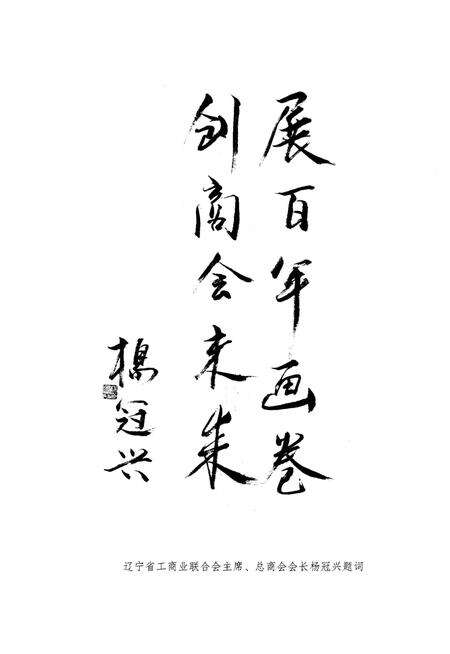 展百年画卷
创商会未来
杨冠兴
辽宁省工商业联合会主席、总商会会长杨冠兴题词